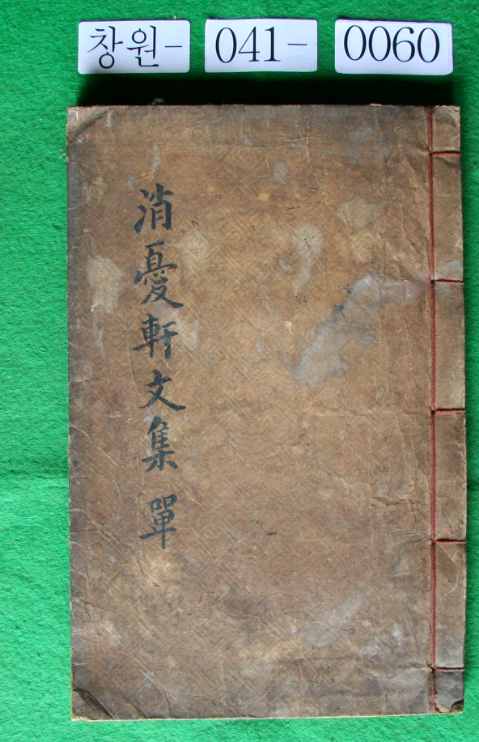 창원- 041- 0060
消憂軒文集 單